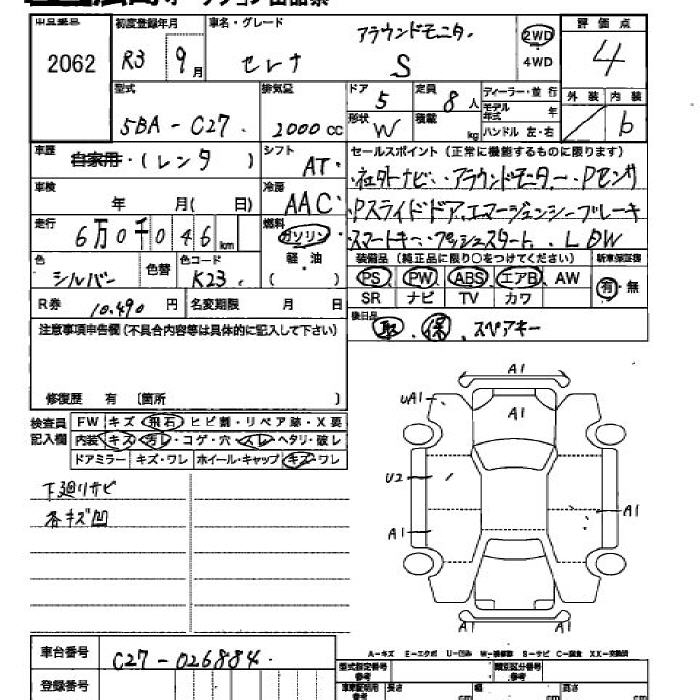 初度登録年月 車名・グレード アラウンドモニター 2WD 評価点
2062 R3 9月 セレナ S 4WD 4
型式 排気量 ドア 5 定員 8人 ディーラー・並行 外装 内装
5BA-C27 2000cc 形状 W 積載 kg モデル年式 年 ハンドル 左・右 b
車歴 自家用・(レンタ) シフト AT セールスポイント(正常に機能するものに限ります)
車検 年 月(日) 冷房 AAC ・社外ナビ・アラウンドモニター・Pセンサ
走行 6万0千046km 燃料 ガソリン 軽油 ・Pスライドドア、エマージェンシーブレーキ
・スマートキー・プッシュスタート・LDW
色 シルバー 色替 色コード K23 装備品(純正品に限り○をつけてください) 新車保証書
PS PW ABS エアB AW 有・無
R券 10,490円 名変期限 月 日 SR ナビ TV カワ
注意事項申告欄(不具合内容等は具体的に記入して下さい) 後日品 取・保・スペアキー
修復歴 有 〔箇所 〕
検査員記入欄 FW キズ・飛石・ヒビ割・リペア跡・X要
内装 キズ・汚レ・コゲ・穴・スレ・ヘタリ・破レ
ドアミラー キズ・ワレ ホイール・キャップ キズ・ワレ
下廻リサビ
各キズ凹
A1
UA1
A1
U2
A1
A1
A1 A1
A-キズ E-エクボ U-凹み W-補修跡 S-サビ C-腐食 XX-交換済
車台番号 C27-026884
型式指定番号 参考 類別区分番号 参考
登録番号 長さ cm 幅 cm 高さ cm